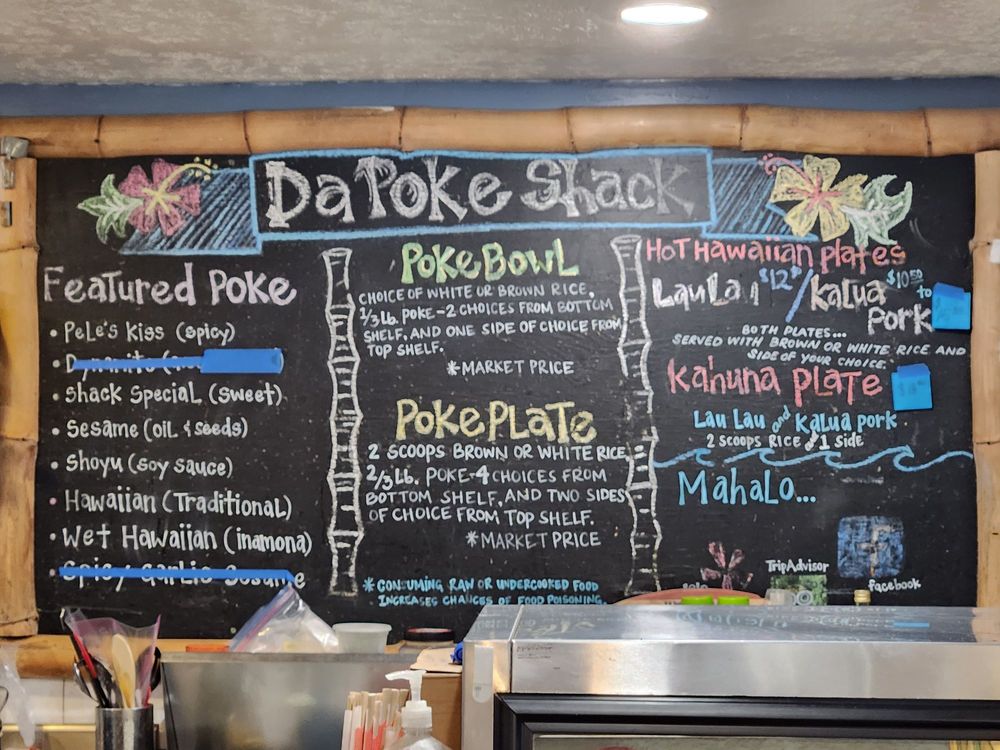 Da Poke Shack
Featured Poke
• Pele's Kiss (spicy)
• Shack Special (sweet)
• Sesame (oil & seeds)
• Shoyu (soy sauce)
• Hawaiian (Traditional)
• Wet Hawaiian (inamona)
• Spicy Garlic Sesame
Poke Bowl
CHOICE OF WHITE OR BROWN RICE,
1/3 Lb. POKE-2 CHOICES FROM BOTTOM
SHELF, AND ONE SIDE OF CHOICE FROM
TOP SHELF.
*MARKET PRICE
Poke Plate
2 SCOOPS BROWN OR WHITE RICE,
2/3 Lb. POKE-4 CHOICES FROM
BOTTOM SHELF, AND TWO SIDES
OF CHOICE FROM TOP SHELF.
*MARKET PRICE
*CONSUMING RAW OR UNDERCOOKED FOOD
INCREASES CHANCES OF FOOD POISONING.
Hot Hawaiian Plates
Lau Lau / Kalua
to
Pork
BOTH PLATES...
SERVED WITH BROWN OR WHITE RICE AND
SIDE OF YOUR CHOICE.
Kahuna Plate
Lau Lau and Kalua pork
2 scoops Rice 1 side
Mahalo...
TripAdvisor
facebook